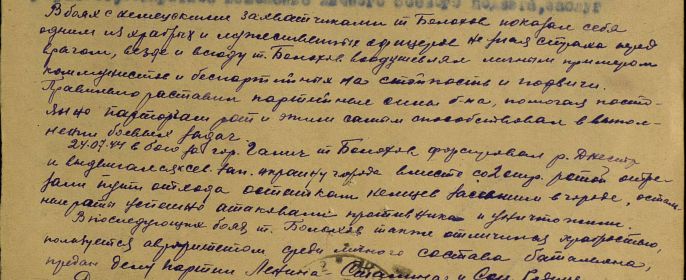 В боях с немецкими захватчиками т. Болохов показал себя
одним из храбрых и мужественных офицеров не зная страха перед
врагом, везде и всюду т. Болохов воодушевлял личным примером
коммунистов и беспартийных на стойкость и подвиги.
Правильно расставил партийные силы б-на, помогая посто-
янно парторгам рот и этим самым способствовал в выпол-
нении боевых задач.
24.07.44 в бою за гор. Галич т. Болохов форсировал р. Днестр
и выдвигаясь сев. зап. окраину города вместе со стр. ротой отре-
зали пути отхода остаткам немцев засевшим в городе,
успешно атаковали противника и уничтожили.
В последующих боях т. Болохов также отличился храбростью,
пользуется авторитетом среди личного состава батальона,
предан делу партии Ленина - Сталина и Соц. Родине